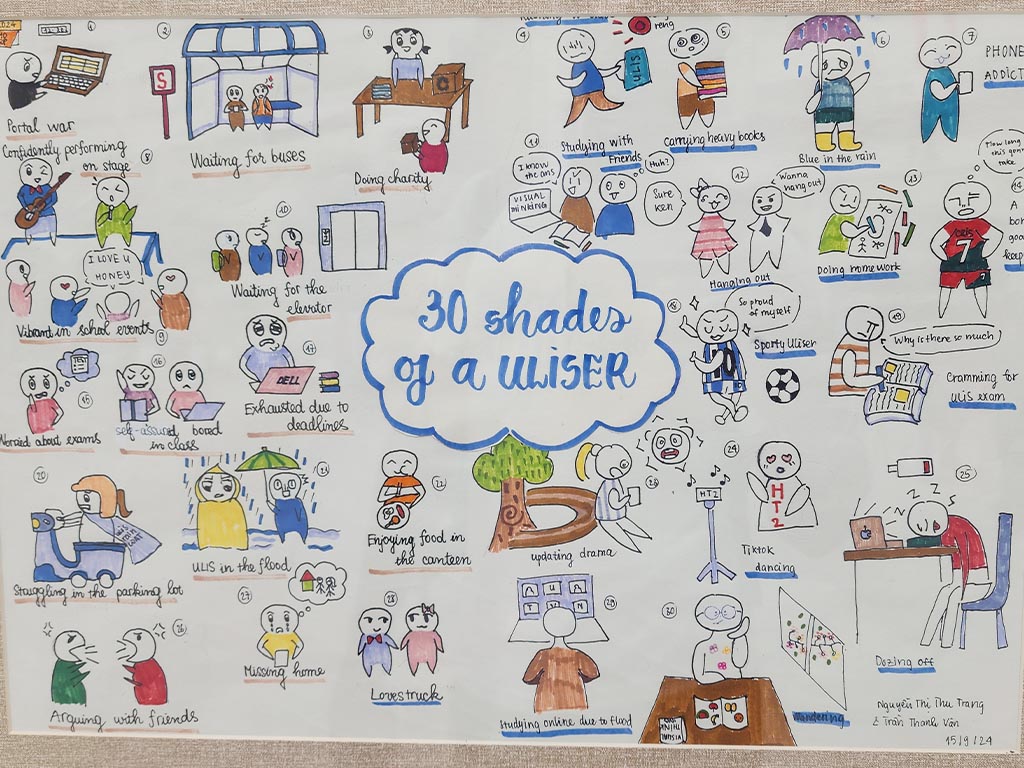 1
Portal war
2
S
Waiting for buses
3
Doing charity
4
ULIS
Studying with
friends
reng
5
carrying heavy books
6
Blue in the rain
7
PHONE
ADDICT
Confidently performing
on stage
8
I LOVE U
HONEY
Vibrant in school events
9
10
V
V
Waiting for the
elevator
11
I know
the ans
Huh?
VISUAL
THINKING
12
Sure
ken
Wanna
hang out
Hanging out
13
Doing homework
How long
this gonna
take
7
A
goa
keep
30 shades
of a ULISER
TEST
15
Woraid about exams
16
self-assured, bored
in class
17
DELL
Exhausted due to
deadlines
18
So proud
of myself
Sporty Uliser
19
Why is there so much
Cramming for
ULIS exam
20
Struggling in the parking lot
21
ULIS in the flood
22
Enjoying food in
the canteen
updating drama
24
HT2
HT2
Tiktok
dancing
25
Z Z Z
Dozing off
26
Arguing with friends
27
Missing home
28
Lovestruck
29
Studying online due to flood
30
Wandering
Nguyễn Thị Thu Trang
& Trần Thanh Vân
15/9/24